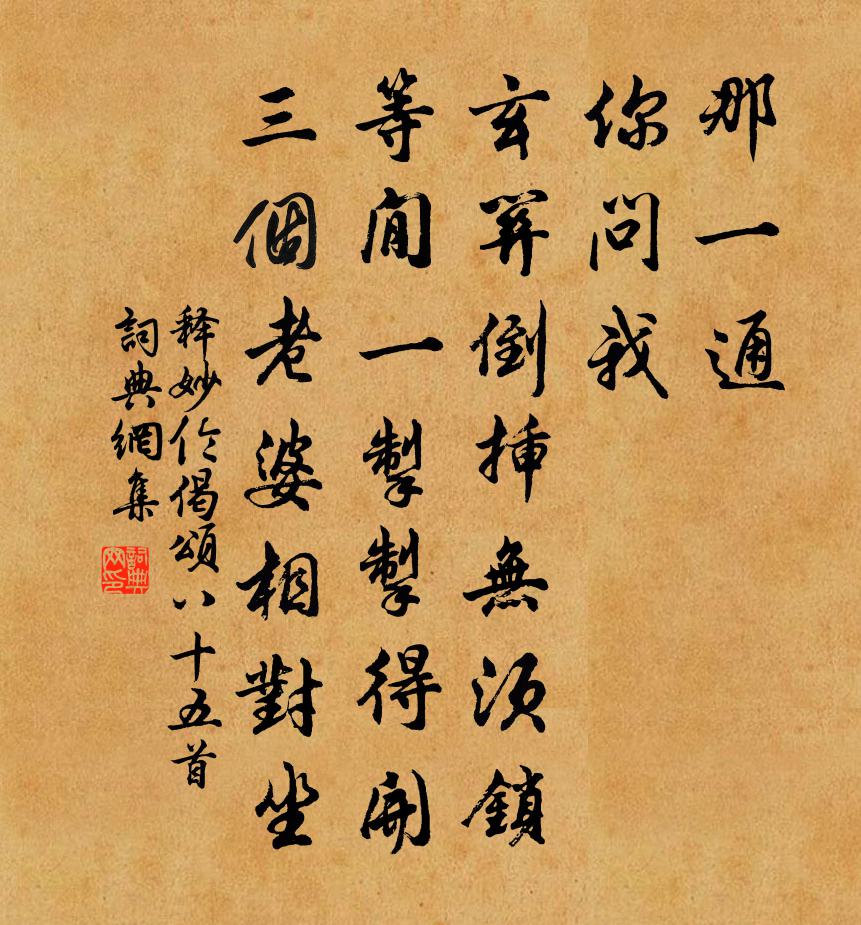 那一通
你問我
玄關倒揷無須鎖
等閒一掣掣得開
三個老婆相對坐
释妙伦偈頌八十五首
詞典網集
詞典
网印